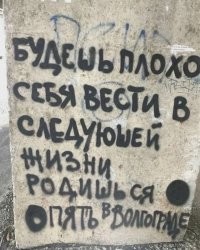 БУДЕШЬ ПЛОХО
СЕБЯ ВЕСТИ В
СЛЕДУЮШЕЙ
ЖИЗНИ
РОДИШЬСЯ
ОПЯТЬ В ВОЛГОГРАДЕ